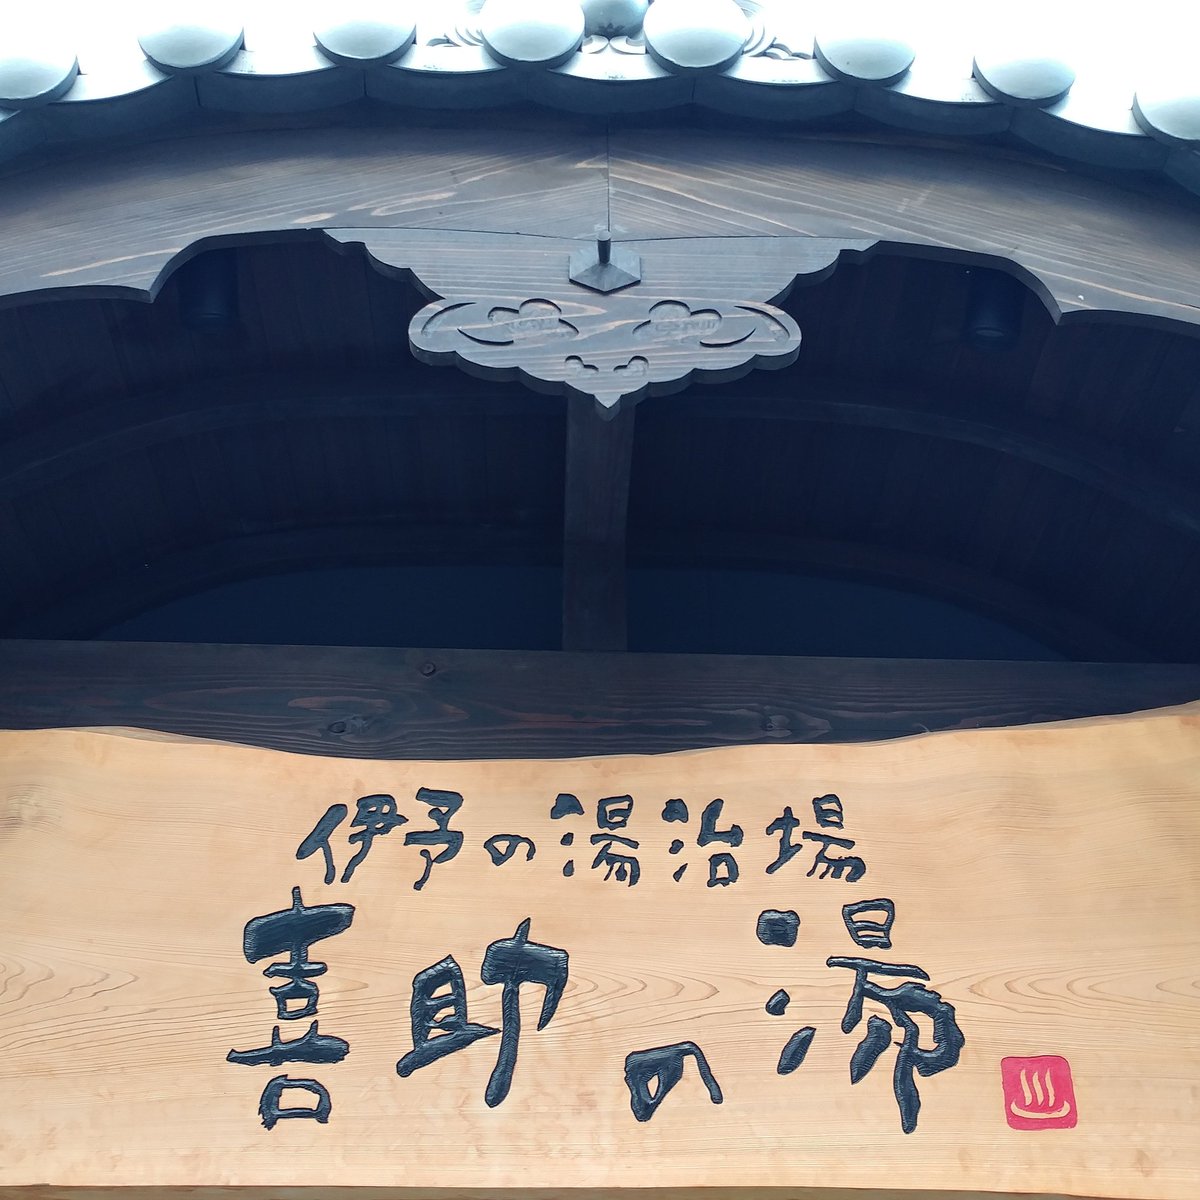 伊予の湯治場
喜助の湯